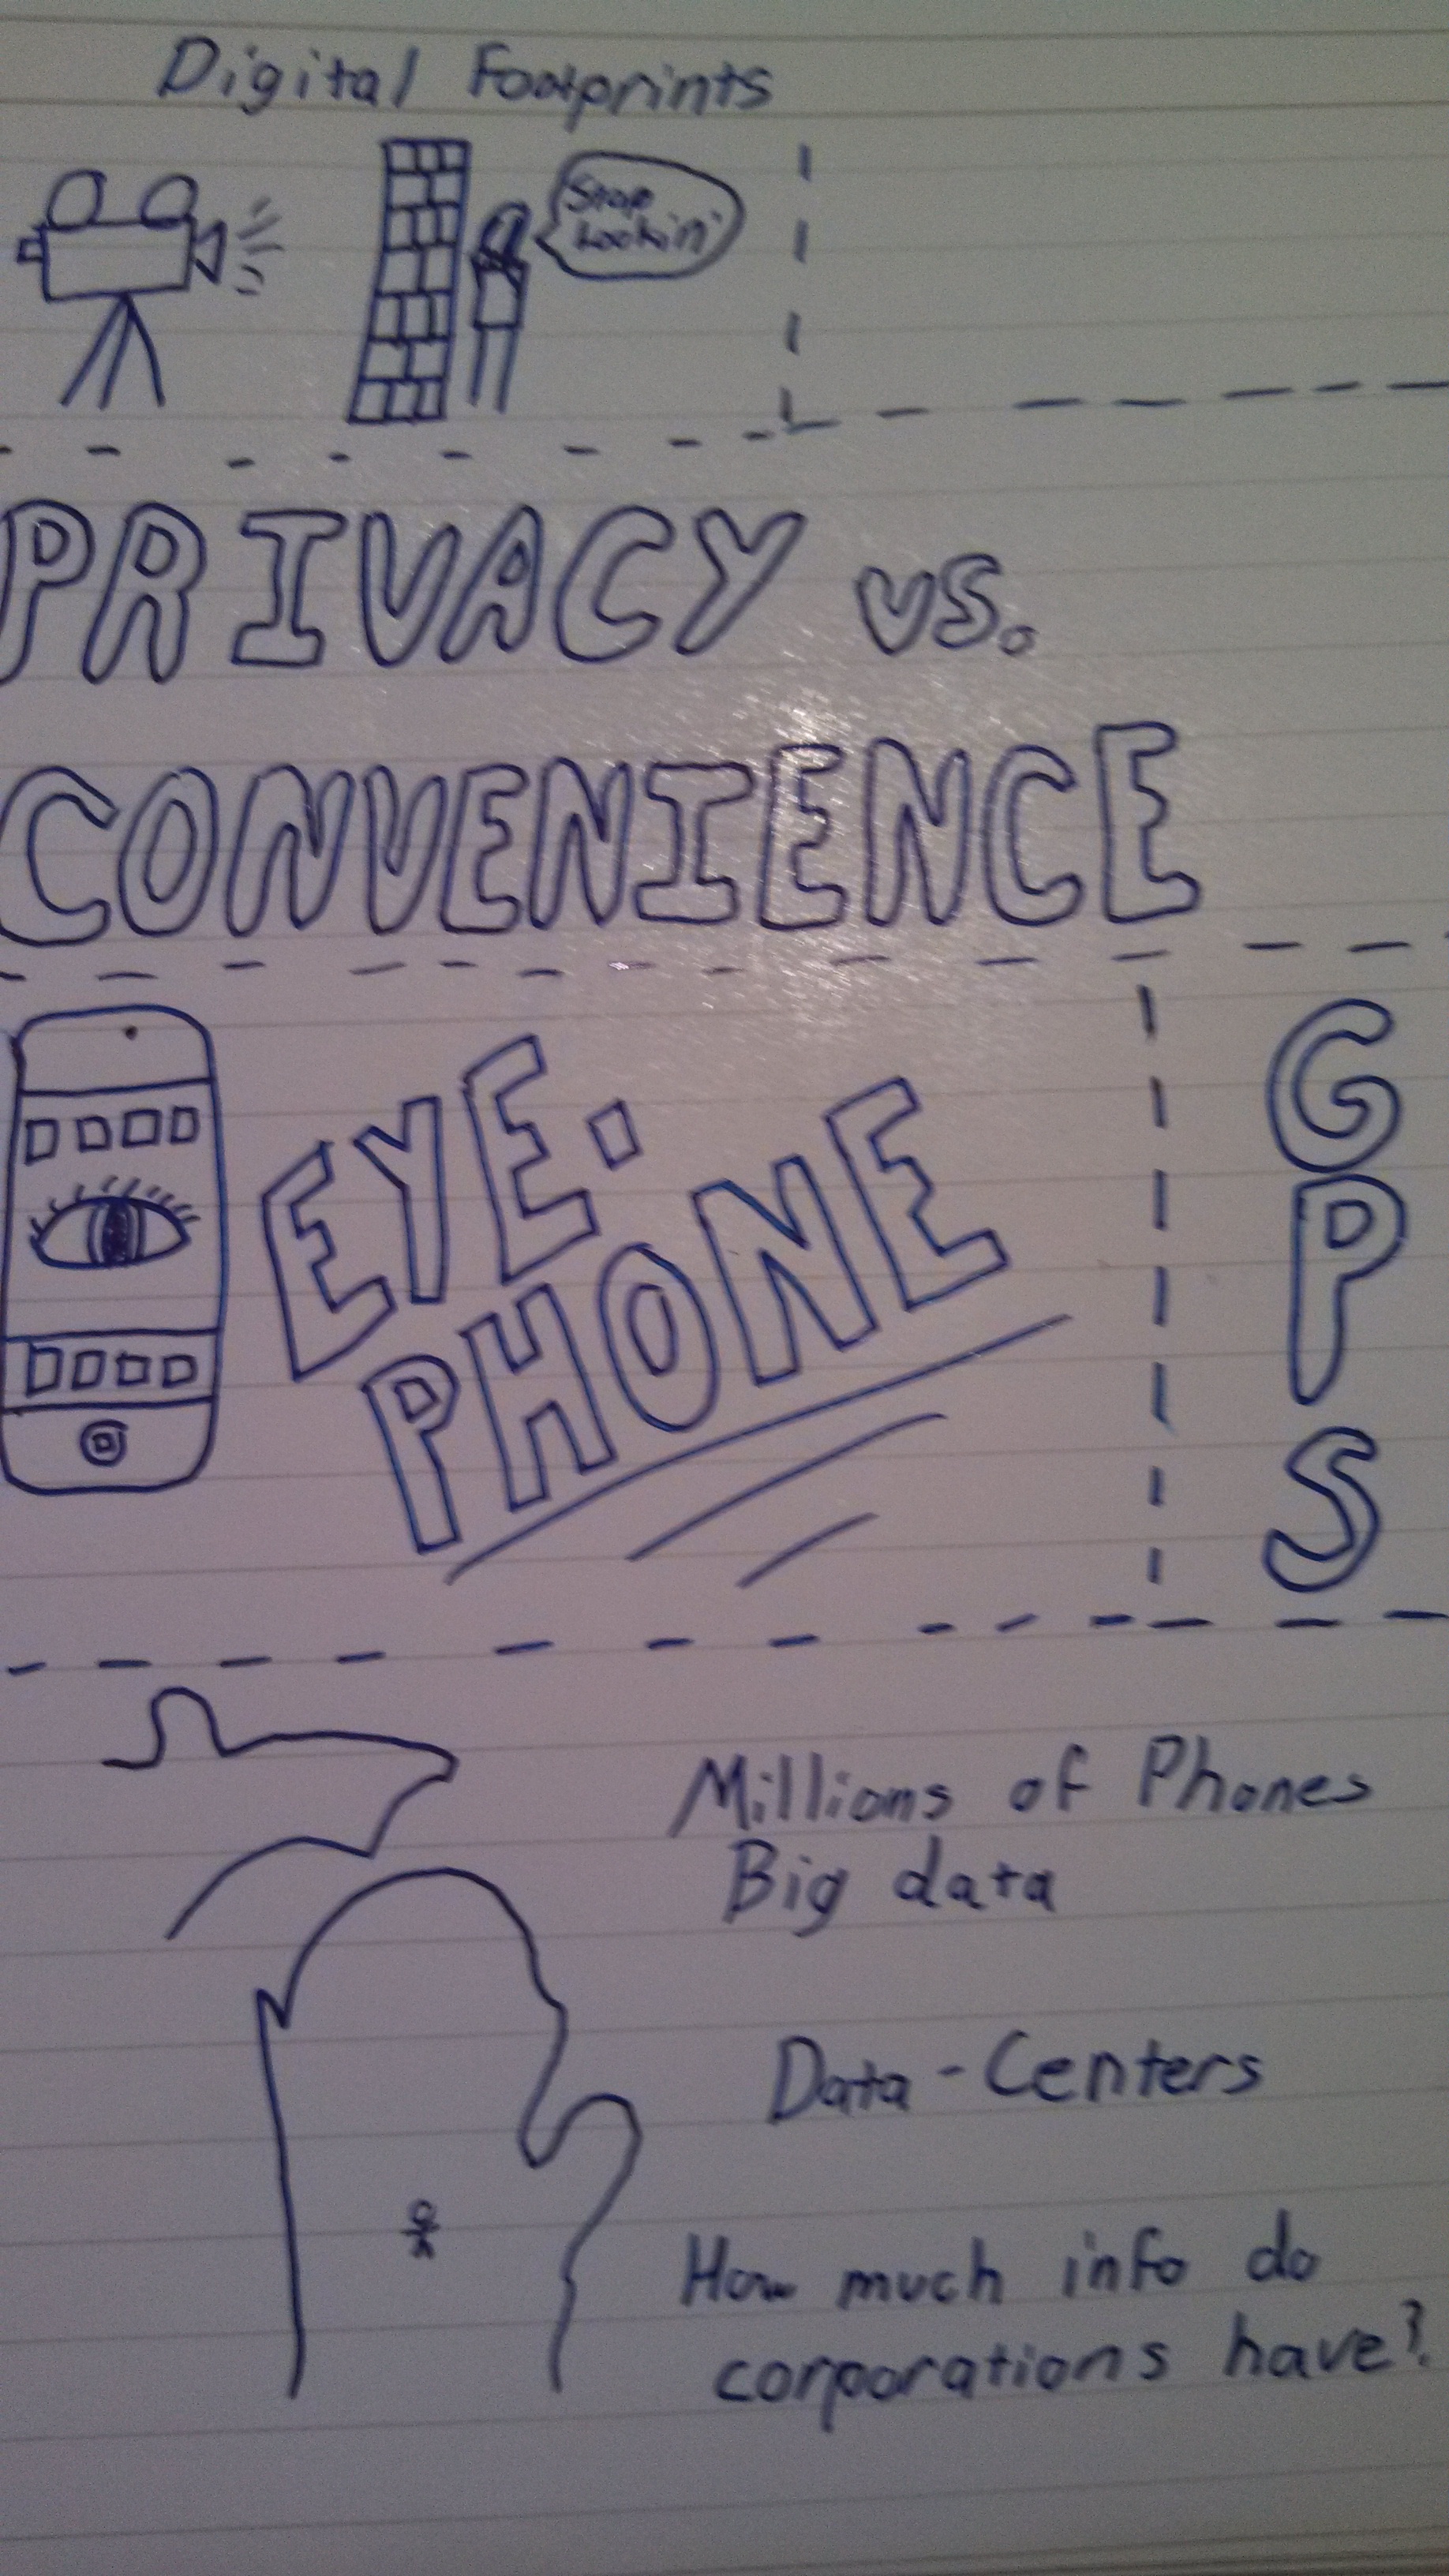 Digital Footprints
Stop
Lookin'
PRIVACY vs.
CONVENIENCE
EYE.
PHONE
GPS
Millions of Phones
Big data
Data-Centers
How much info do
corporations have?